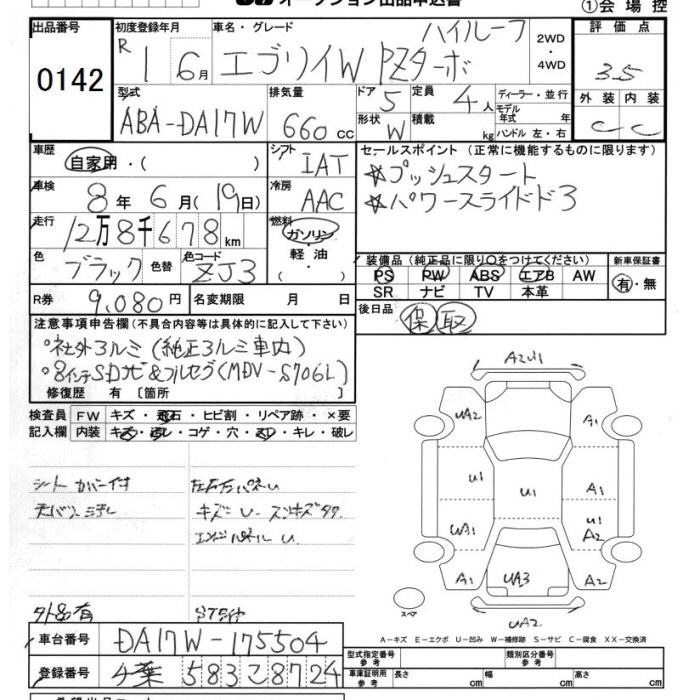 オークション出品申込書
①会場控
出品番号
0142
初度登録年月
R 1 6月
車名・グレード
エブリイW PZターボ ハイルーフ
2WD・4WD
評価点
3.5
型式
ABA-DA17W
排気量
660 cc
ドア 5
形状 W
定員 4人
積載 kg
ディーラー・並行
モデル年式 年
ハンドル 左・右
外装 内装
C C
車歴
自家用・( )
シフト IAT
セールスポイント (正常に機能するものに限ります)
☆プッシュスタート
☆パワースライドド3
車検
8年 6月(19日)
冷房 AAC
走行
12万8千678km
燃料
ガソリン・軽油・
色 ブラック 色替 色コード ZJ3
装備品 (純正品に限り○をつけてください)
PS PW ABS エアB AW
SR ナビ TV 本革
新車保証書
有・無
R券 9,080円 名変期限 月 日
後日品 保 取
注意事項申告欄(不具合内容等は具体的に記入して下さい)
°社外アルミ(純正アルミ車内)
°8インチSDナビ&フルセグ(MDV-S706L)
修復歴 有 〔箇所 〕
検査員 FW キズ・飛石・ヒビ割・リペア跡・×要
記入欄 内装 キズ・汚レ・コゲ・穴・スレ・キレ・破レ
シートカバー付
左右
キズ U
U
外品有
A2U1
UA2
A1
U1
U1
A1
UA1
U1
A2
A1
UA3
A2
UA2
スペア
A-キズ E-エクボ U-凹み W-補修跡 S-サビ C-腐食 XX-交換済
車台番号 DA17W-175504
登録番号 千葉 583 こ 8724
型式指定番号 参考
類別区分番号 参考
車庫証明用 参考 長さ cm 幅 cm 高さ cm